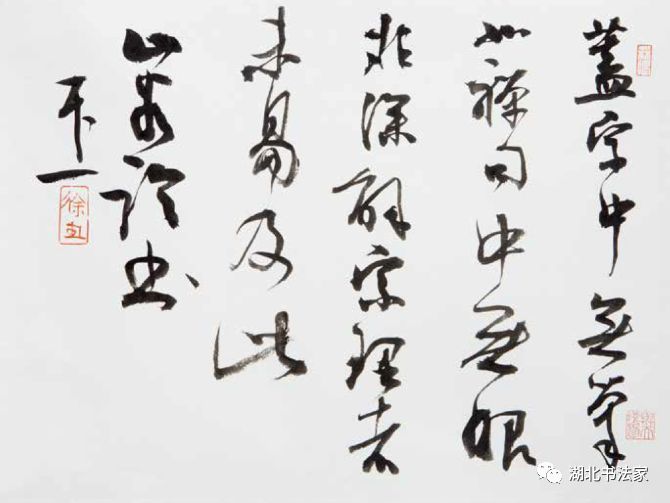 蓋字中無筆
如禪句中無眼
非深解宗理者
未易及此
山谷論書
湖北书法家